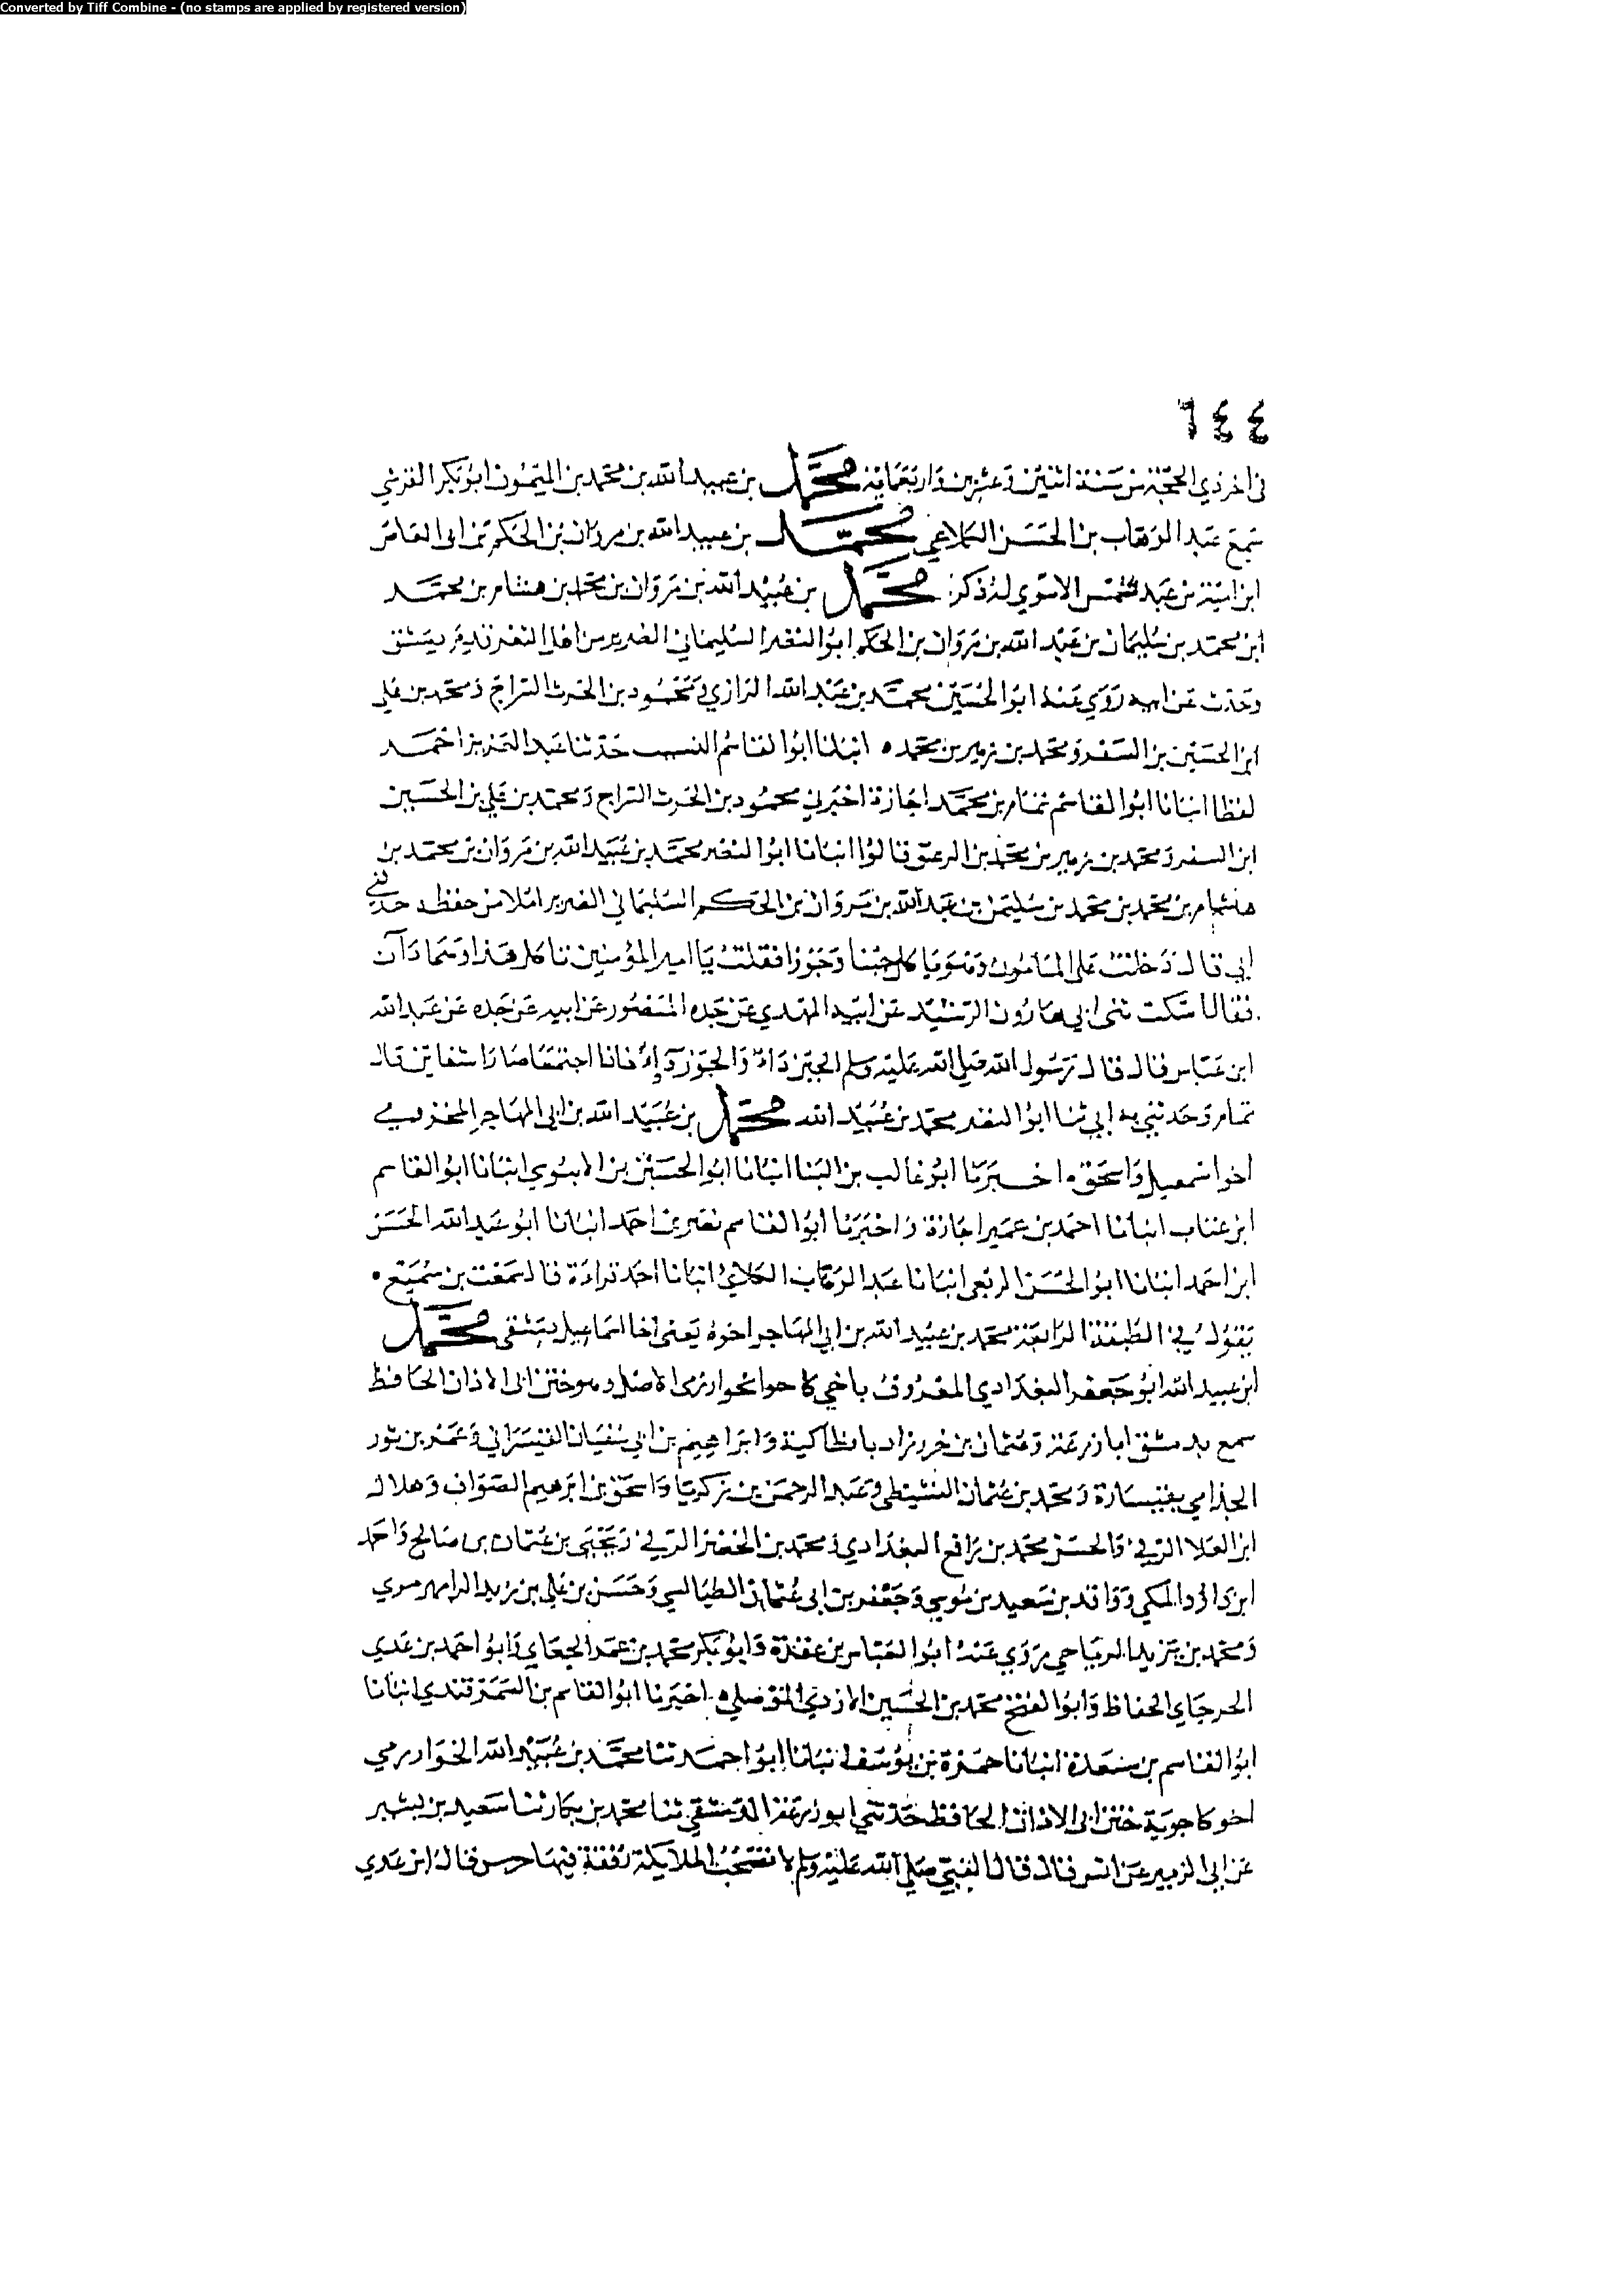 Converted by Tiff Combine - (no stamps are applied by registered version)
٦٤٤
في اخر ذي الحجة من سنة اثنين وعشرين واربعمائة محمد بن عبيد الله بن محمد بن الميمون ابو بكر القرشي
سمع عبد الوهاب بن الحسن الكلاعي محمد بن عبيد الله بن مروان بن الحكم بن ابي العاص
ابن امية بن عبد شمس الاموي له ذكر محمد بن عبيد الله بن مروان بن محمد بن هشام بن محمد
ابن محمد بن سليمان بن عبد الله بن مروان بن الحكم ابو النضر السليماني الضرير من اهل قدم دمشق
وحدث عن ابيه روى عنه ابو الحسين محمد بن عبد الله الرازي ومحمود بن الحرث السراج ومحمد بن علي
ابن الحسين بن السفر ومحمد بن زهير بن محمد ه انبانا ابو القاسم النسيب حدثنا عبد العزيز بن احمد
لفظا انبانا ابو القاسم تمام بن محمد اجازة اخبرني محمود بن الحرث السراج ومحمد بن علي بن الحسين
ابن السفر ومحمد بن زهير بن محمد بن قالوا انبانا ابو النضر محمد بن عبيد الله بن مروان بن محمد بن
هشام بن محمد بن محمد بن سليمن بن عبد الله بن مروان بن الحكم السليماني الضرير املا من حفظه حدثني
ابي قال دخلت على المامون وهو ياكل جبنا وجوزا فقلت يا امير المؤمنين تاكل هذا وهما داآن
فقال اسكت ثنى ابي هارون الرشيد عن ابيه المهدي عن جده المنصور عن ابيه عن جده عن عبد الله
ابن عباس قال قال رسول الله صلى الله عليه وسلم الجبن داء والجوز داء فاذا اجتمعا صارا شفاين قال
تمام وحدثني به ابي ثنا ابو النضر محمد بن عبيد الله محمد بن عبيد الله بن ابي المهاجر المخزومي
اخو اسمعيل واسحق ه اخبرنا ابو غالب بن البنا انبانا ابو الحسين بن الابنوسي انبانا ابو القاسم
ابن عتاب انبانا احمد بن عمير اجازة واخبرنا ابو القاسم نصر بن احمد انبانا ابو عبد الله الحسن
ابن احمد انبانا ابو الحسن الربعي انبانا عبد الوهاب الكلابي انبانا احمد قراءة قال سمعت بن سميع
يقول في الطبقة الرابعة محمد بن عبيد الله بن ابي المهاجر اخوه يعني اخا اسماعيل دمشقي محمد
ابن عبيد الله ابو جعفر البغدادي المعروف باخي كاجوا خوارزمي الاصل وهو ختن ابي الاذان الحافظ
سمع بدمشق ابا زرعة وعثمان بن خرزاد بانطاكية وابراهيم بن ابي سفيان القيسراني وعمر بن ثور
الجذامي بقيسارة ومحمد بن عثمان النشيطي وعبد الرحمن بن زكريا واسحق بن ابرهيم الصواف وهلال
ابن العلا الرقي والحسن محمد بن رافع البغدادي ومحمد بن الخضر الرقي ويحيى بن عثمان بن صالح واحمد
ابن داؤد المكي وواقد بن سعيد بن موسى وجعفر بن ابي عثمان الطيالسي وحسن بن علي بن زيد الرامهرمزي
ومحمد بن يزيد الرياحي روى عنه ابو العباس بن عقدة وابو بكر محمد بن عمر الجعابي وابو احمد بن عدي
الجرجاني الحفاظ وابو الفتح محمد بن الحسين الازدي الموصلي اخبرنا ابو القاسم بن السمرقندي انبانا
ابو القاسم بن مسعدة انبانا حمزة بن يوسف انبانا ابو احمد ثنا محمد بن عبيد الله الخوارزمي
اخو كاجوية ختن ابي الاذان الحافظ حدثني ابو زرعة الدمشقي ثنا محمد بن بكار ثنا سعيد بن بشير
عن ابي الزبير عن انس قال قال النبي صلى الله عليه وسلم لا تصحب الملايكة رفقة فيها جرس قال ابن عدي